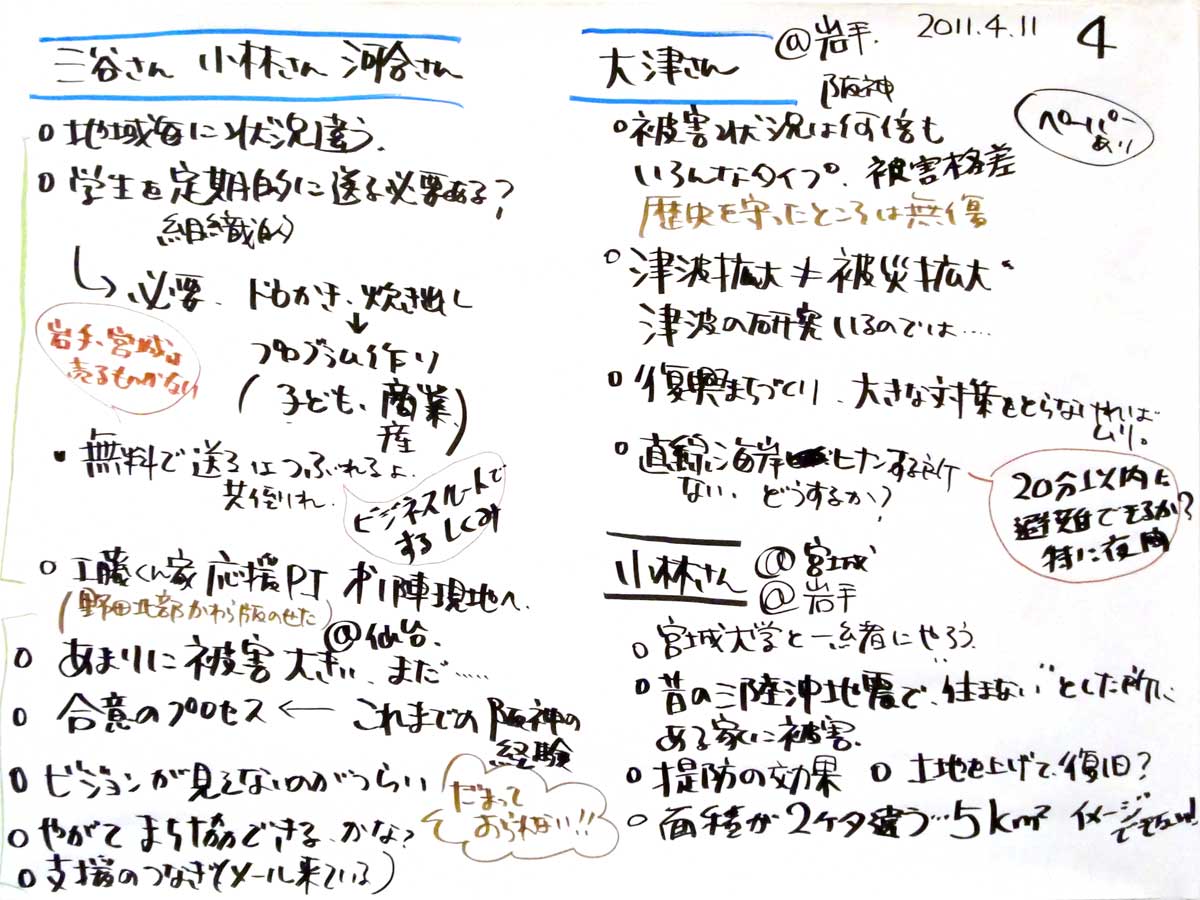 三谷さん 小林さん 河合さん
○地域毎に状況違う.
○学生を定期的に送る必要ある?
組織的
↳必要. ドロかき、炊き出し
↓
プログラム作り
(子ども、商業、)
産
岩手、宮城は
売るものがない
・無料で送るはつぶれるよ.
共倒れ.
ビジネスルートで
するしくみ
○工藤くん家 応援PJ 本陣現地へ.
(野田北部かわら版のせた)
@仙台.
○あまりに被害大きい、まだ……
○合意のプロセス ← これまでの阪神の
経験
○ビジョンが見えないのがつらい
だまって
おられない!!
○やがてまち協できる.かな?
○支援のつなぎ(メール来ている)
大津さん @岩手. 2011.4.11 4
阪神
ペーパー
あり
○被害状況は何倍も
いろんなタイプ。被害格差
歴史を守ったところは無傷
○津波拡大≠被災拡大
津波の研究いるのでは‥‥
○復興まちづくり、大きな対策をとらなければ
ムリ。
○直線海岸 ヒナンする所
ない. どうするか?
20分以内に
避難できるか?
特に夜間
小林さん @宮城
@岩手
○宮城大学と一緒にやろう.
○昔の三陸沖地震で、"住まない"とした所に
ある家に被害.
○堤防の効果 ○土地を上げて、復旧?
○面積が2ケタ違う…5km² イメージ
できない!